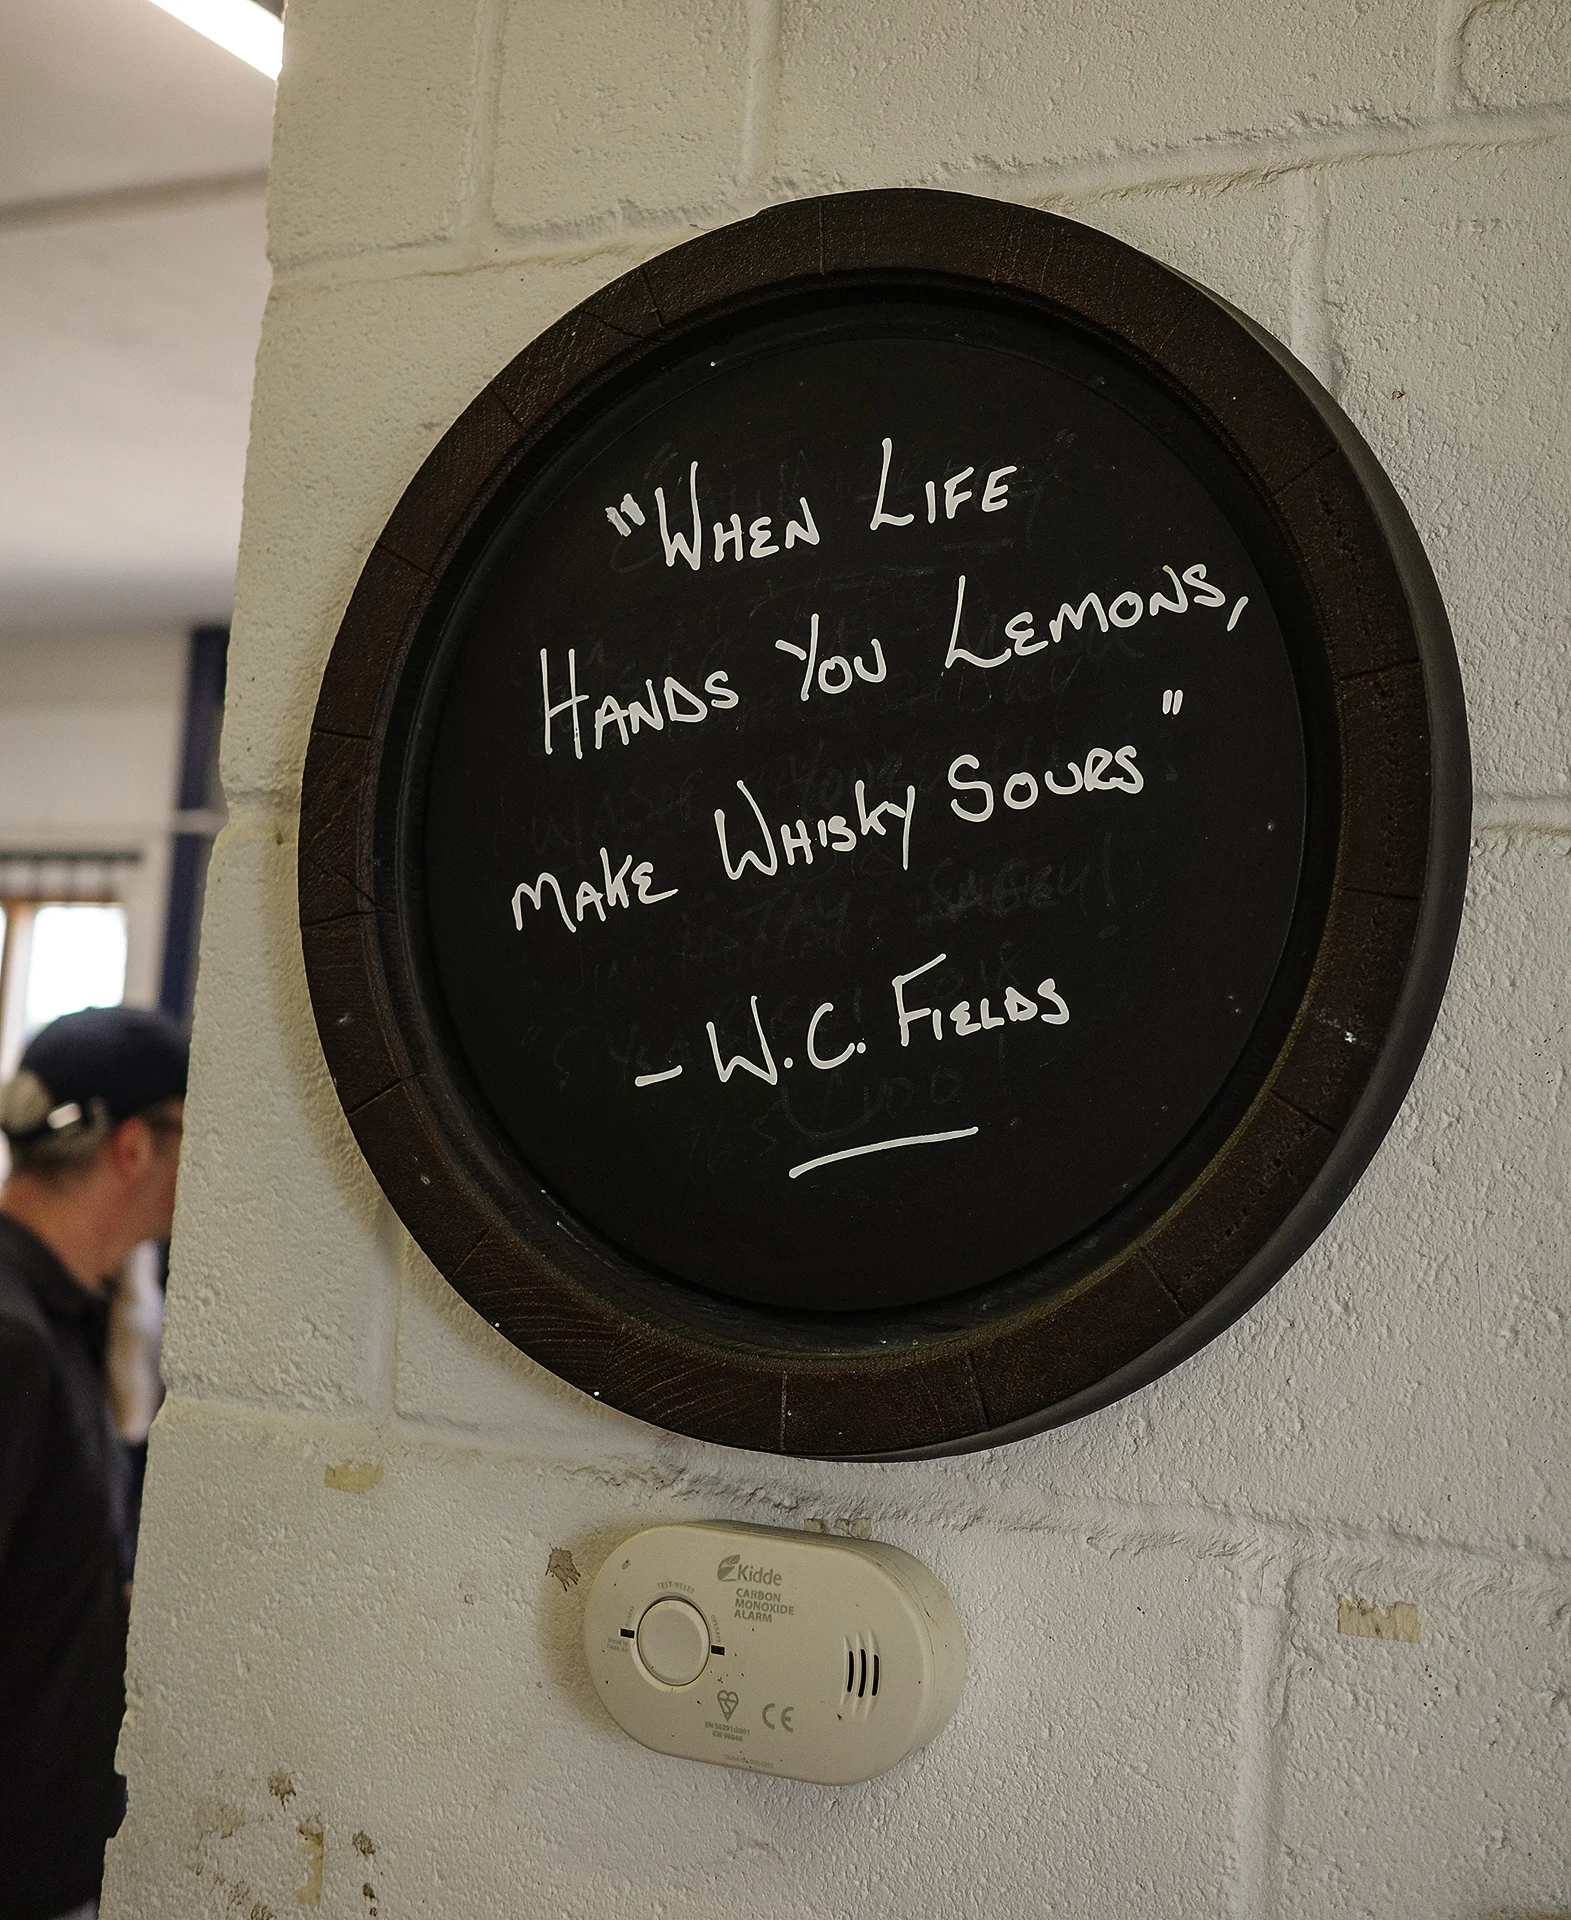 "When Life
Hands You Lemons,
make Whisky Sours"
- W.C. Fields
Kidde
CARBON
MONOXIDE
ALARM
TEST/RESET
CE